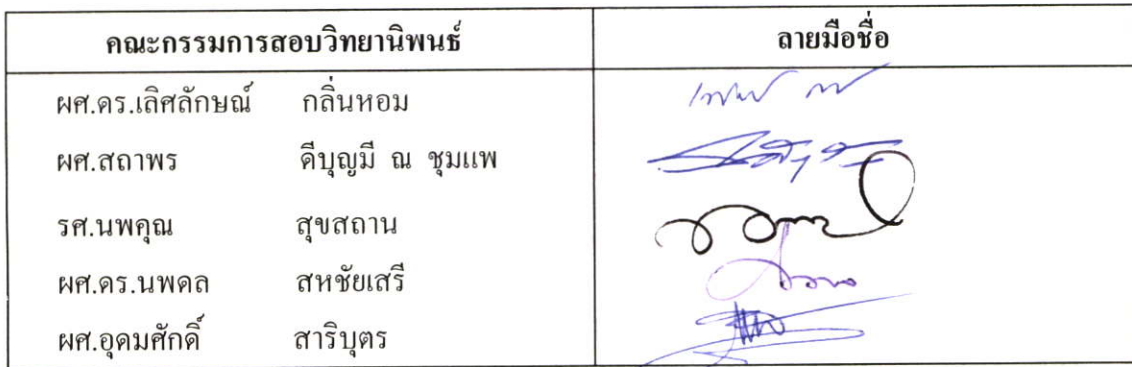 คณะกรรมการสอบวิทยานิพนธ์ ลายมือชื่อ
ผศ.ดร.เลิศลักษณ์ กลิ่นหอม
ผศ.สถาพร ดีบุญมี ณ ชุมแพ
รศ.นพคุณ สุขสถาน
ผศ.ดร.นพดล สหชัยเสรี
ผศ.อุดมศักดิ์ สาริบุตร